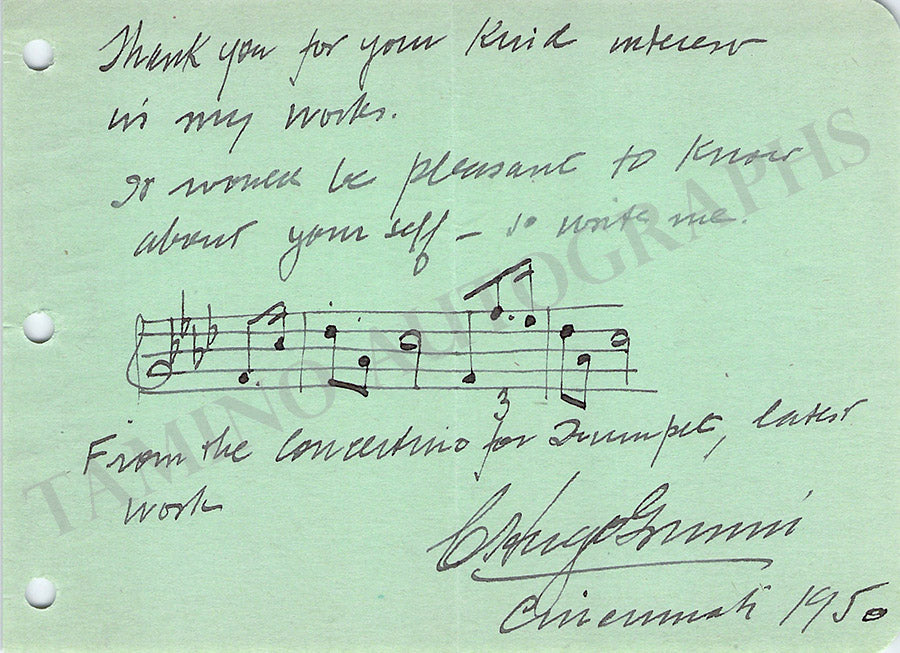 Thank you for your kind interest
in my works.
It would be pleasant to know
about yourself – so write me.
3
From the Concertino for Trumpet, latest
work
C Hugo Grimm
Cincinnati 1950
TAMINO AUTOGRAPHS